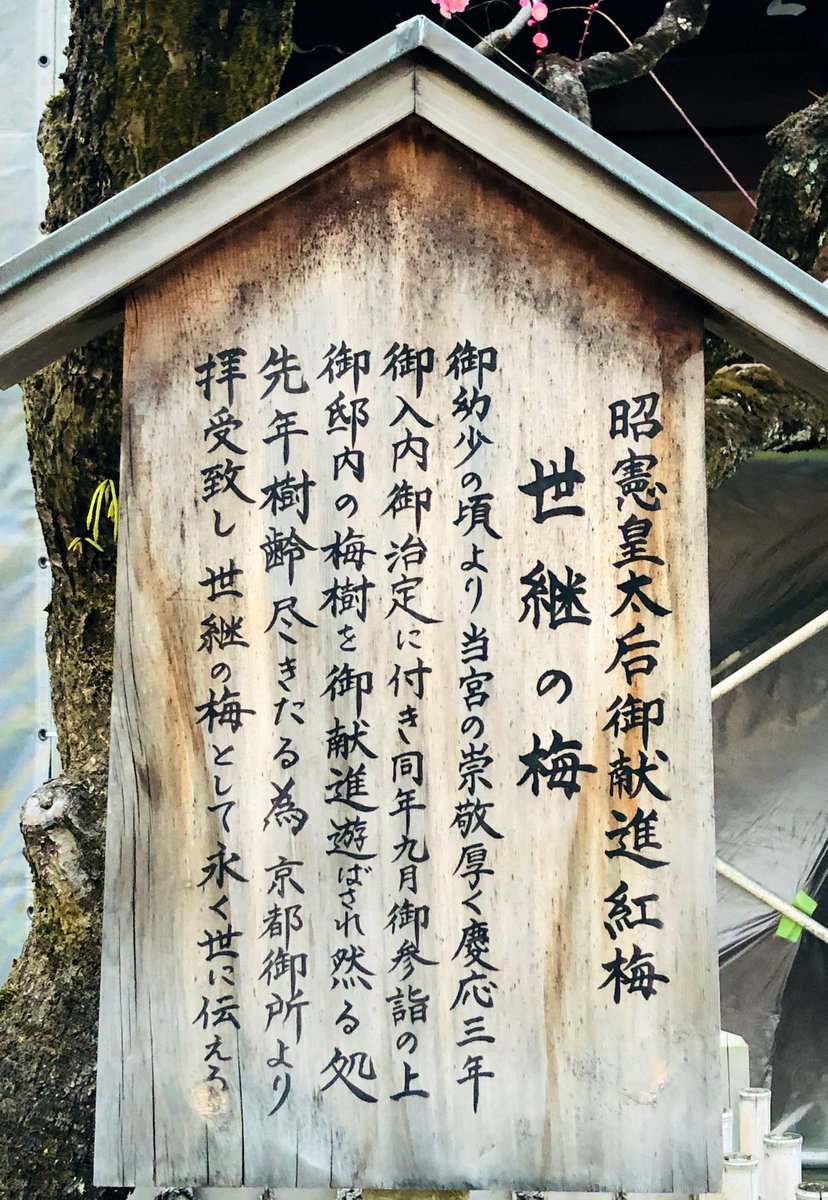 昭憲皇太后御献進紅梅
世継の梅
御幼少の頃より当宮の崇敬厚く慶応三年
御入内御治定に付き同年九月御参詣の上
御邸内の梅樹を御献進遊ばされ然る処
先年樹齢尽きたる為京都御所より
拝受致し世継の梅として永く世に伝えろ